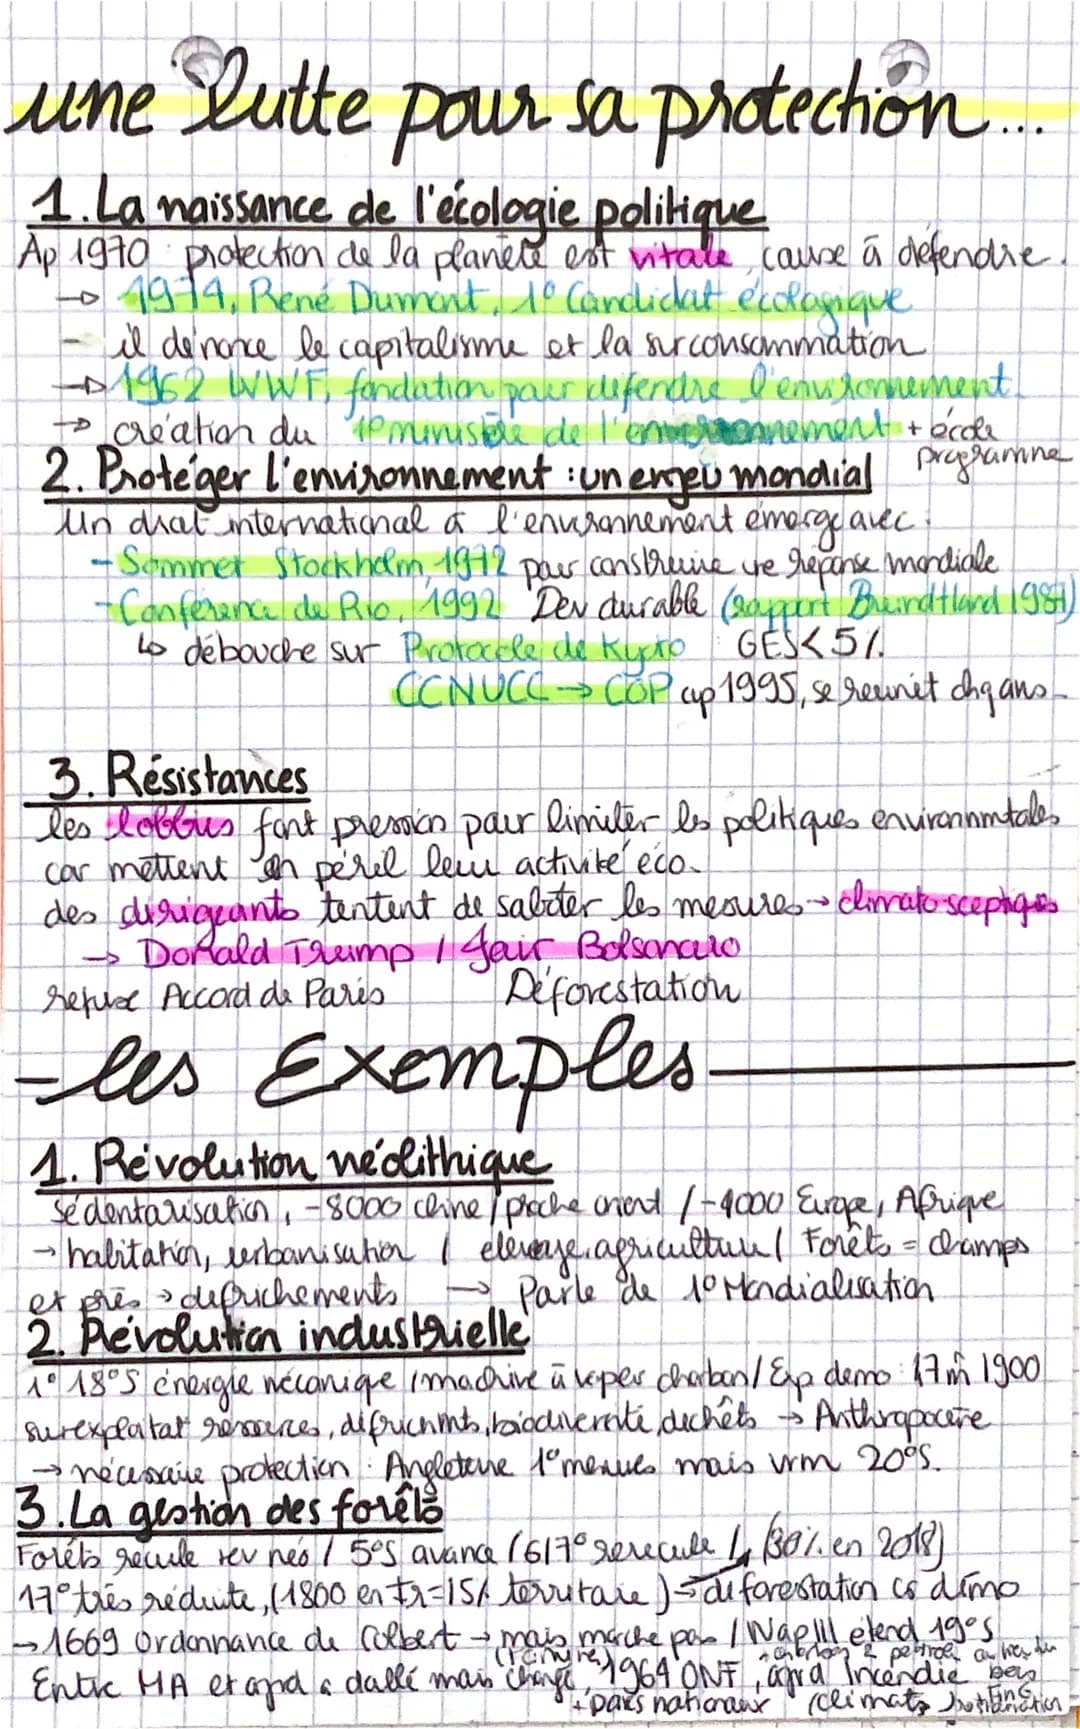 une lutte pour sa protection...
1. La naissance de l'écologie politique
Ap 1970 : protection de la planète est vitale, cause à défendre.
→ 1974, René Dumont, 1° Candidat écologique
- il dénonce le capitalisme et la surconsommation
→ 1962 WWF, fondation pour défendre l'environnement.
→ création du 1° ministère de l'environnement + école
programme
2. Protéger l'environnement : un enjeu mondial
Un droit international à l'environnement émerge avec :
- Sommet Stockholm, 1972 pour construire une réponse mondiale
- Conférence de Rio, 1992 Dev durable (rapport Bruindtland 1987)
↳ débouche sur Protocole de Kyoto : GES < 5%.
CCNUCC → COP ap 1995, se réunit chq ans.
3. Résistances
les lobbies font pression pour limiter les politiques environnmtales
car mettent en péril leur activité éco.
des dirigeants tentent de saboter les mesures → climato sceptiques
→ Donald Trump / Jair Bolsonaro
refuse Accord de Paris Déforestation
- les Exemples
1. Révolution néolithique
sédentarisation, -8000 chine / proche orient / -4000 Europe, Afrique
→ habitation, urbanisation / élevage, agriculture / Forêts = champs
et prés → défrichements → Parle de 1° Mondialisation
2. Révolution industrielle
1° 18°S énergie mécanique / machine à vaper charbon / Exp demo : 1900
surexploitat° ressources, défrichmts, biodiversité, déchêts → Anthropocène
→ nécessaire protection : Angleterre 1° mesures mais vrm 20°S.
3. La gestion des forêts
Forêts recule rev néo / 5°S avance / 6/7° rerecule (30% en 2018)
17° très réduite, (1800 en Fr = 15% territoire) déforestation démo
→ 1669 Ordonnance de Colbert → mais marche pas / Nap III étend 19°S
Entre MA et ajrd a dallé mais changé, 1964 ONF, ajrd Incendie
+ parcs nationaux (climat)